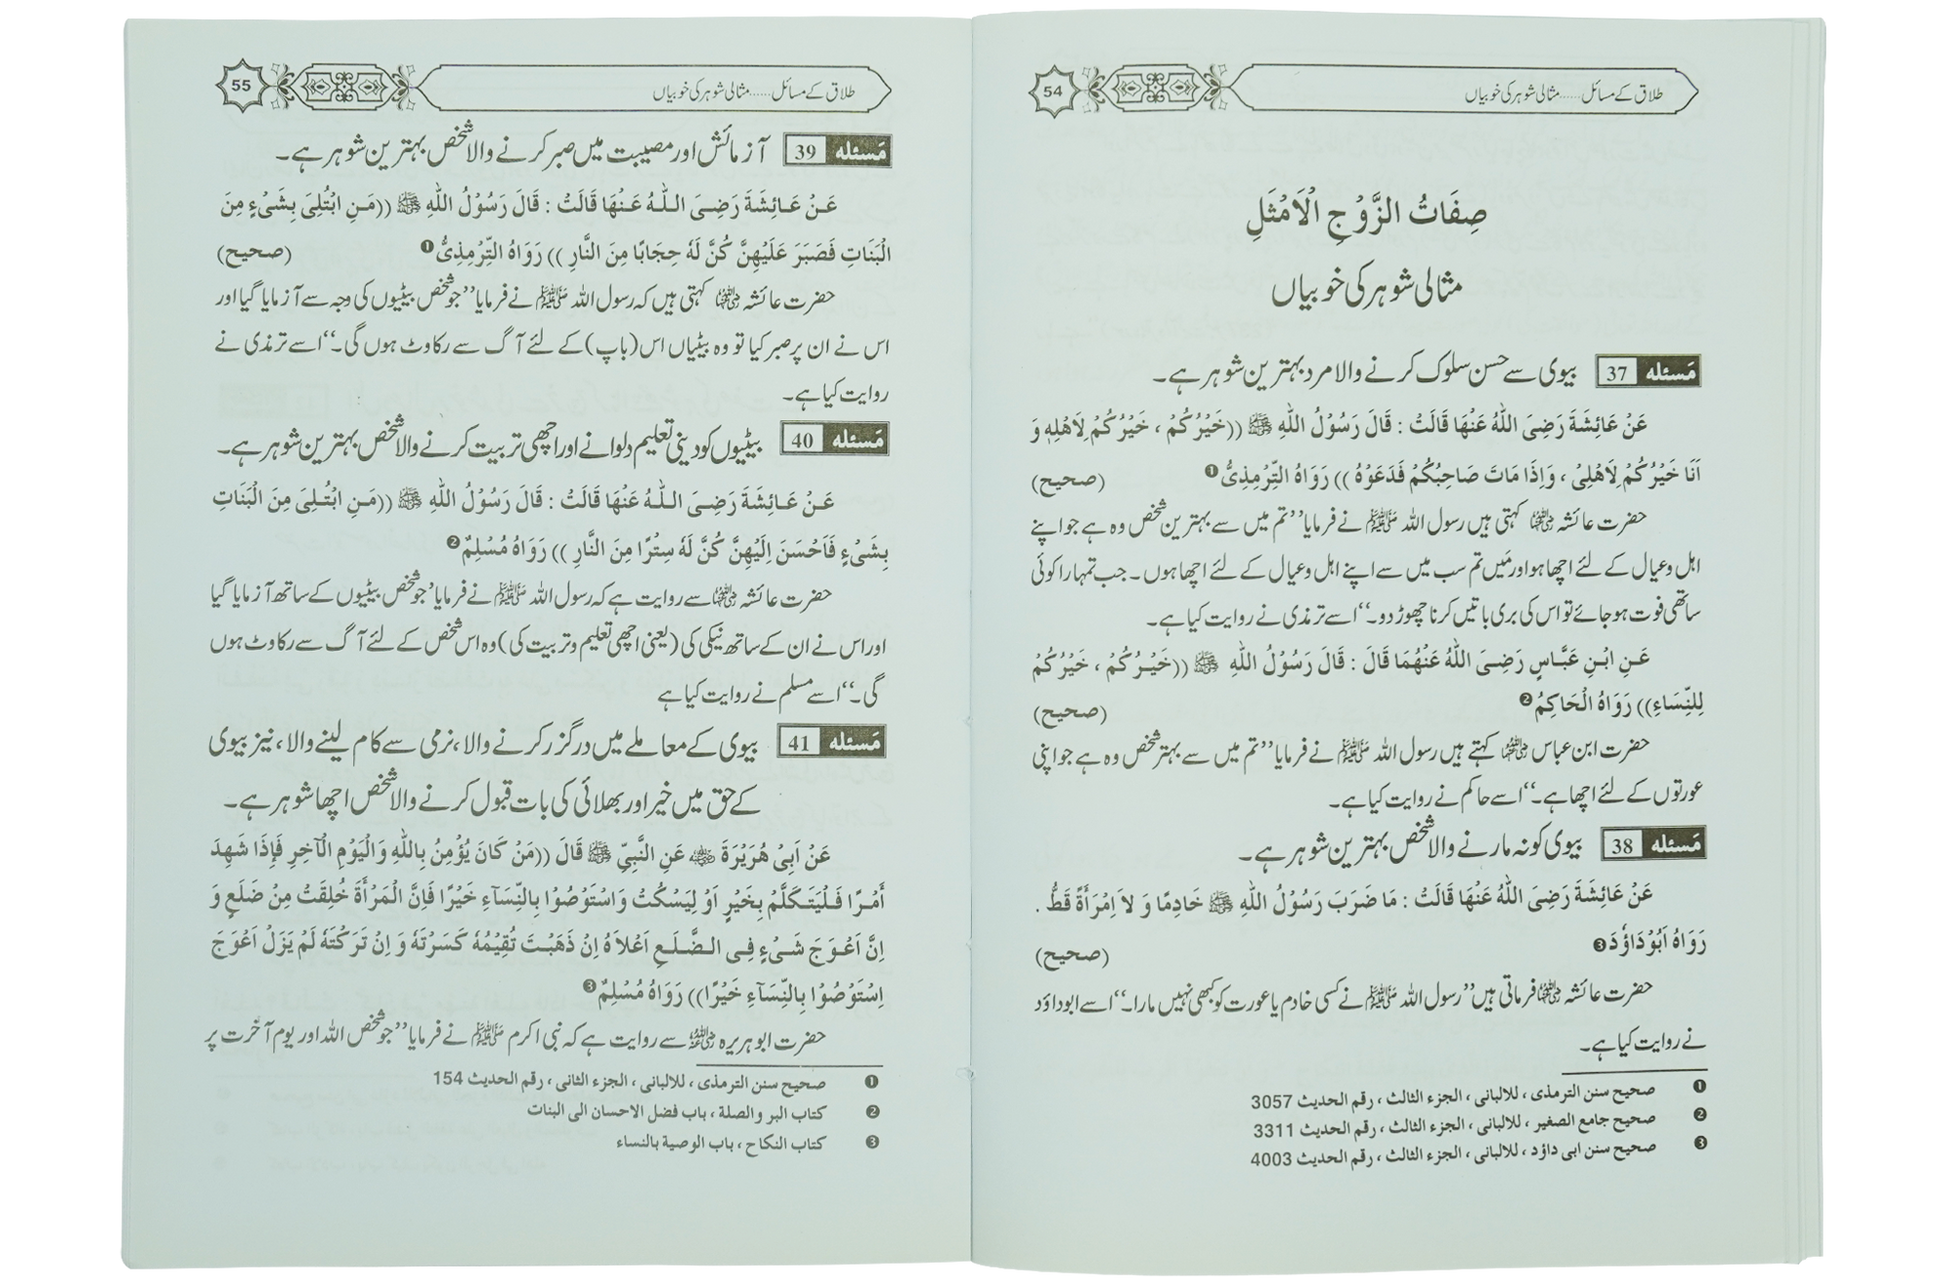 54 طلاق کے مسائل......مثالی شوہر کی خوبیاں
صِفَاتُ الزَّوْجِ الْاَمْثَلِ
مثالی شوہر کی خوبیاں
مَسئله 37 بیوی سے حسن سلوک کرنے والا مرد بہترین شوہر ہے۔
عَنْ عَائِشَةَ رَضِیَ اللّٰهُ عَنْهَا قَالَتْ : قَالَ رَسُوْلُ اللّٰهِ ﷺ ((خَیْرُکُمْ ، خَیْرُکُمْ لِاَهْلِهٖ وَ
اَنَا خَیْرُکُمْ لِاَهْلِیْ ، وَاِذَا مَاتَ صَاحِبُکُمْ فَدَعَوْهُ )) رَوَاهُ التِّرْمِذِیُّ ❶ (صحیح)
حضرت عائشہ رضی اللہ عنہا کہتی ہیں رسول اللہ ﷺ نے فرمایا ”تم میں سے بہترین شخص وہ ہے جو اپنے
اہل و عیال کے لئے اچھا ہو اور مَیں تم سب میں سے اپنے اہل و عیال کے لئے اچھا ہوں ۔ جب تمہارا کوئی
ساتھی فوت ہو جائے تو اس کی بری باتیں کرنا چھوڑ دو۔“ اسے ترمذی نے روایت کیا ہے۔
عَنِ ابْنِ عَبَّاسٍ رَضِیَ اللّٰهُ عَنْهُمَا قَالَ : قَالَ رَسُوْلُ اللّٰهِ ﷺ ((خَیْرُکُمْ ، خَیْرُکُمْ
لِلنِّسَاءِ)) رَوَاهُ الْحَاکِمُ ❷ (صحیح)
حضرت ابن عباس رضی اللہ عنہما کہتے ہیں رسول اللہ ﷺ نے فرمایا ”تم میں سے بہتر شخص وہ ہے جو اپنی
عورتوں کے لئے اچھا ہے۔“ اسے حاکم نے روایت کیا ہے۔
مَسئله 38 بیوی کو نہ مارنے والا شخص بہترین شوہر ہے۔
عَنْ عَائِشَةَ رَضِیَ اللّٰهُ عَنْهَا قَالَتْ : مَا ضَرَبَ رَسُوْلُ اللّٰهِ ﷺ خَادِمًا وَ لاَ اِمْرَأَةً قَطُّ .
رَوَاهُ اَبُوْدَاوٗدَ ❸ (صحیح)
حضرت عائشہ رضی اللہ عنہا فرماتی ہیں ”رسول اللہ ﷺ نے کسی خادم یا عورت کو کبھی نہیں مارا۔“ اسے ابوداؤد
نے روایت کیا ہے۔
❶ صحیح سنن الترمذی ، للالبانی ، الجزء الثالث ، رقم الحدیث 3057
❷ صحیح جامع الصغیر ، للالبانی ، الجزء الثالث ، رقم الحدیث 3311
❸ صحیح سنن ابی داؤد ، للالبانی ، الجزء الثالث ، رقم الحدیث 4003
55 طلاق کے مسائل......مثالی شوہر کی خوبیاں
مَسئله 39 آزمائش اور مصیبت میں صبر کرنے والا شخص بہترین شوہر ہے۔
عَنْ عَائِشَةَ رَضِیَ اللّٰهُ عَنْهَا قَالَتْ : قَالَ رَسُوْلُ اللّٰهِ ﷺ ((مَنِ ابْتُلِیَ بِشَیْءٍ مِنَ
الْبَنَاتِ فَصَبَرَ عَلَیْهِنَّ کُنَّ لَهٗ حِجَابًا مِنَ النَّارِ )) رَوَاهُ التِّرْمِذِیُّ ❶ (صحیح)
حضرت عائشہ رضی اللہ عنہا کہتی ہیں کہ رسول اللہ ﷺ نے فرمایا ”جو شخص بیٹیوں کی وجہ سے آزمایا گیا اور
اس نے ان پر صبر کیا تو وہ بیٹیاں اس (باپ) کے لئے آگ سے رکاوٹ ہوں گی۔“ اسے ترمذی نے
روایت کیا ہے۔
مَسئله 40 بیٹیوں کو دینی تعلیم دلوانے اور اچھی تربیت کرنے والا شخص بہترین شوہر ہے۔
عَنْ عَائِشَةَ رَضِیَ اللّٰهُ عَنْهَا قَالَتْ : قَالَ رَسُوْلُ اللّٰهِ ﷺ ((مَنِ ابْتُلِیَ مِنَ الْبَنَاتِ
بِشَیْءٍ فَاَحْسَنَ اِلَیْهِنَّ کُنَّ لَهٗ سِتْرًا مِنَ النَّارِ )) رَوَاهُ مُسْلِمٌ ❷
حضرت عائشہ رضی اللہ عنہا سے روایت ہے کہ رسول اللہ ﷺ نے فرمایا ’جو شخص بیٹیوں کے ساتھ آزمایا گیا
اور اس نے ان کے ساتھ نیکی کی (یعنی اچھی تعلیم و تربیت کی) وہ اس شخص کے لئے آگ سے رکاوٹ ہوں
گی۔“ اسے مسلم نے روایت کیا ہے
مَسئله 41 بیوی کے معاملے میں درگزر کرنے والا، نرمی سے کام لینے والا، نیز بیوی
کے حق میں خیر اور بھلائی کی بات قبول کرنے والا شخص اچھا شوہر ہے۔
عَنْ اَبِیْ هُرَیْرَةَ رضی اللہ عنہ عَنِ النَّبِیِّ ﷺ قَالَ ((مَنْ کَانَ یُؤْمِنُ بِاللّٰهِ وَالْیَوْمِ الْآخِرِ فَإِذَا شَهِدَ
أَمْرًا فَلْیَتَکَلَّمْ بِخَیْرٍ اَوْ لِیَسْکُتْ وَاسْتَوْصُوْا بِالنِّسَآءِ خَیْرًا فَاِنَّ الْمَرْأَةَ خُلِقَتْ مِنْ ضَلَعٍ وَ
اِنَّ اَعْوَجَ شَیْءٍ فِی الضَّلَعِ اَعْلاَهُ اِنْ ذَهَبْتَ تُقِیْمُهٗ کَسَرْتَهٗ وَ اِنْ تَرَکْتَهٗ لَمْ یَزَلْ اَعْوَجَ
اِسْتَوْصُوْا بِالنِّسَآءِ خَیْرًا)) رَوَاهُ مُسْلِمٌ ❸
حضرت ابو ہریرہ رضی اللہ عنہ سے روایت ہے کہ نبی اکرم ﷺ نے فرمایا ”جو شخص اللہ اور یوم آخرت پر
❶ صحیح سنن الترمذی ، للالبانی ، الجزء الثانی ، رقم الحدیث 154
❷ کتاب البر والصلة ، باب فضل الاحسان الی البنات
❸ کتاب النکاح ، باب الوصیة بالنساء